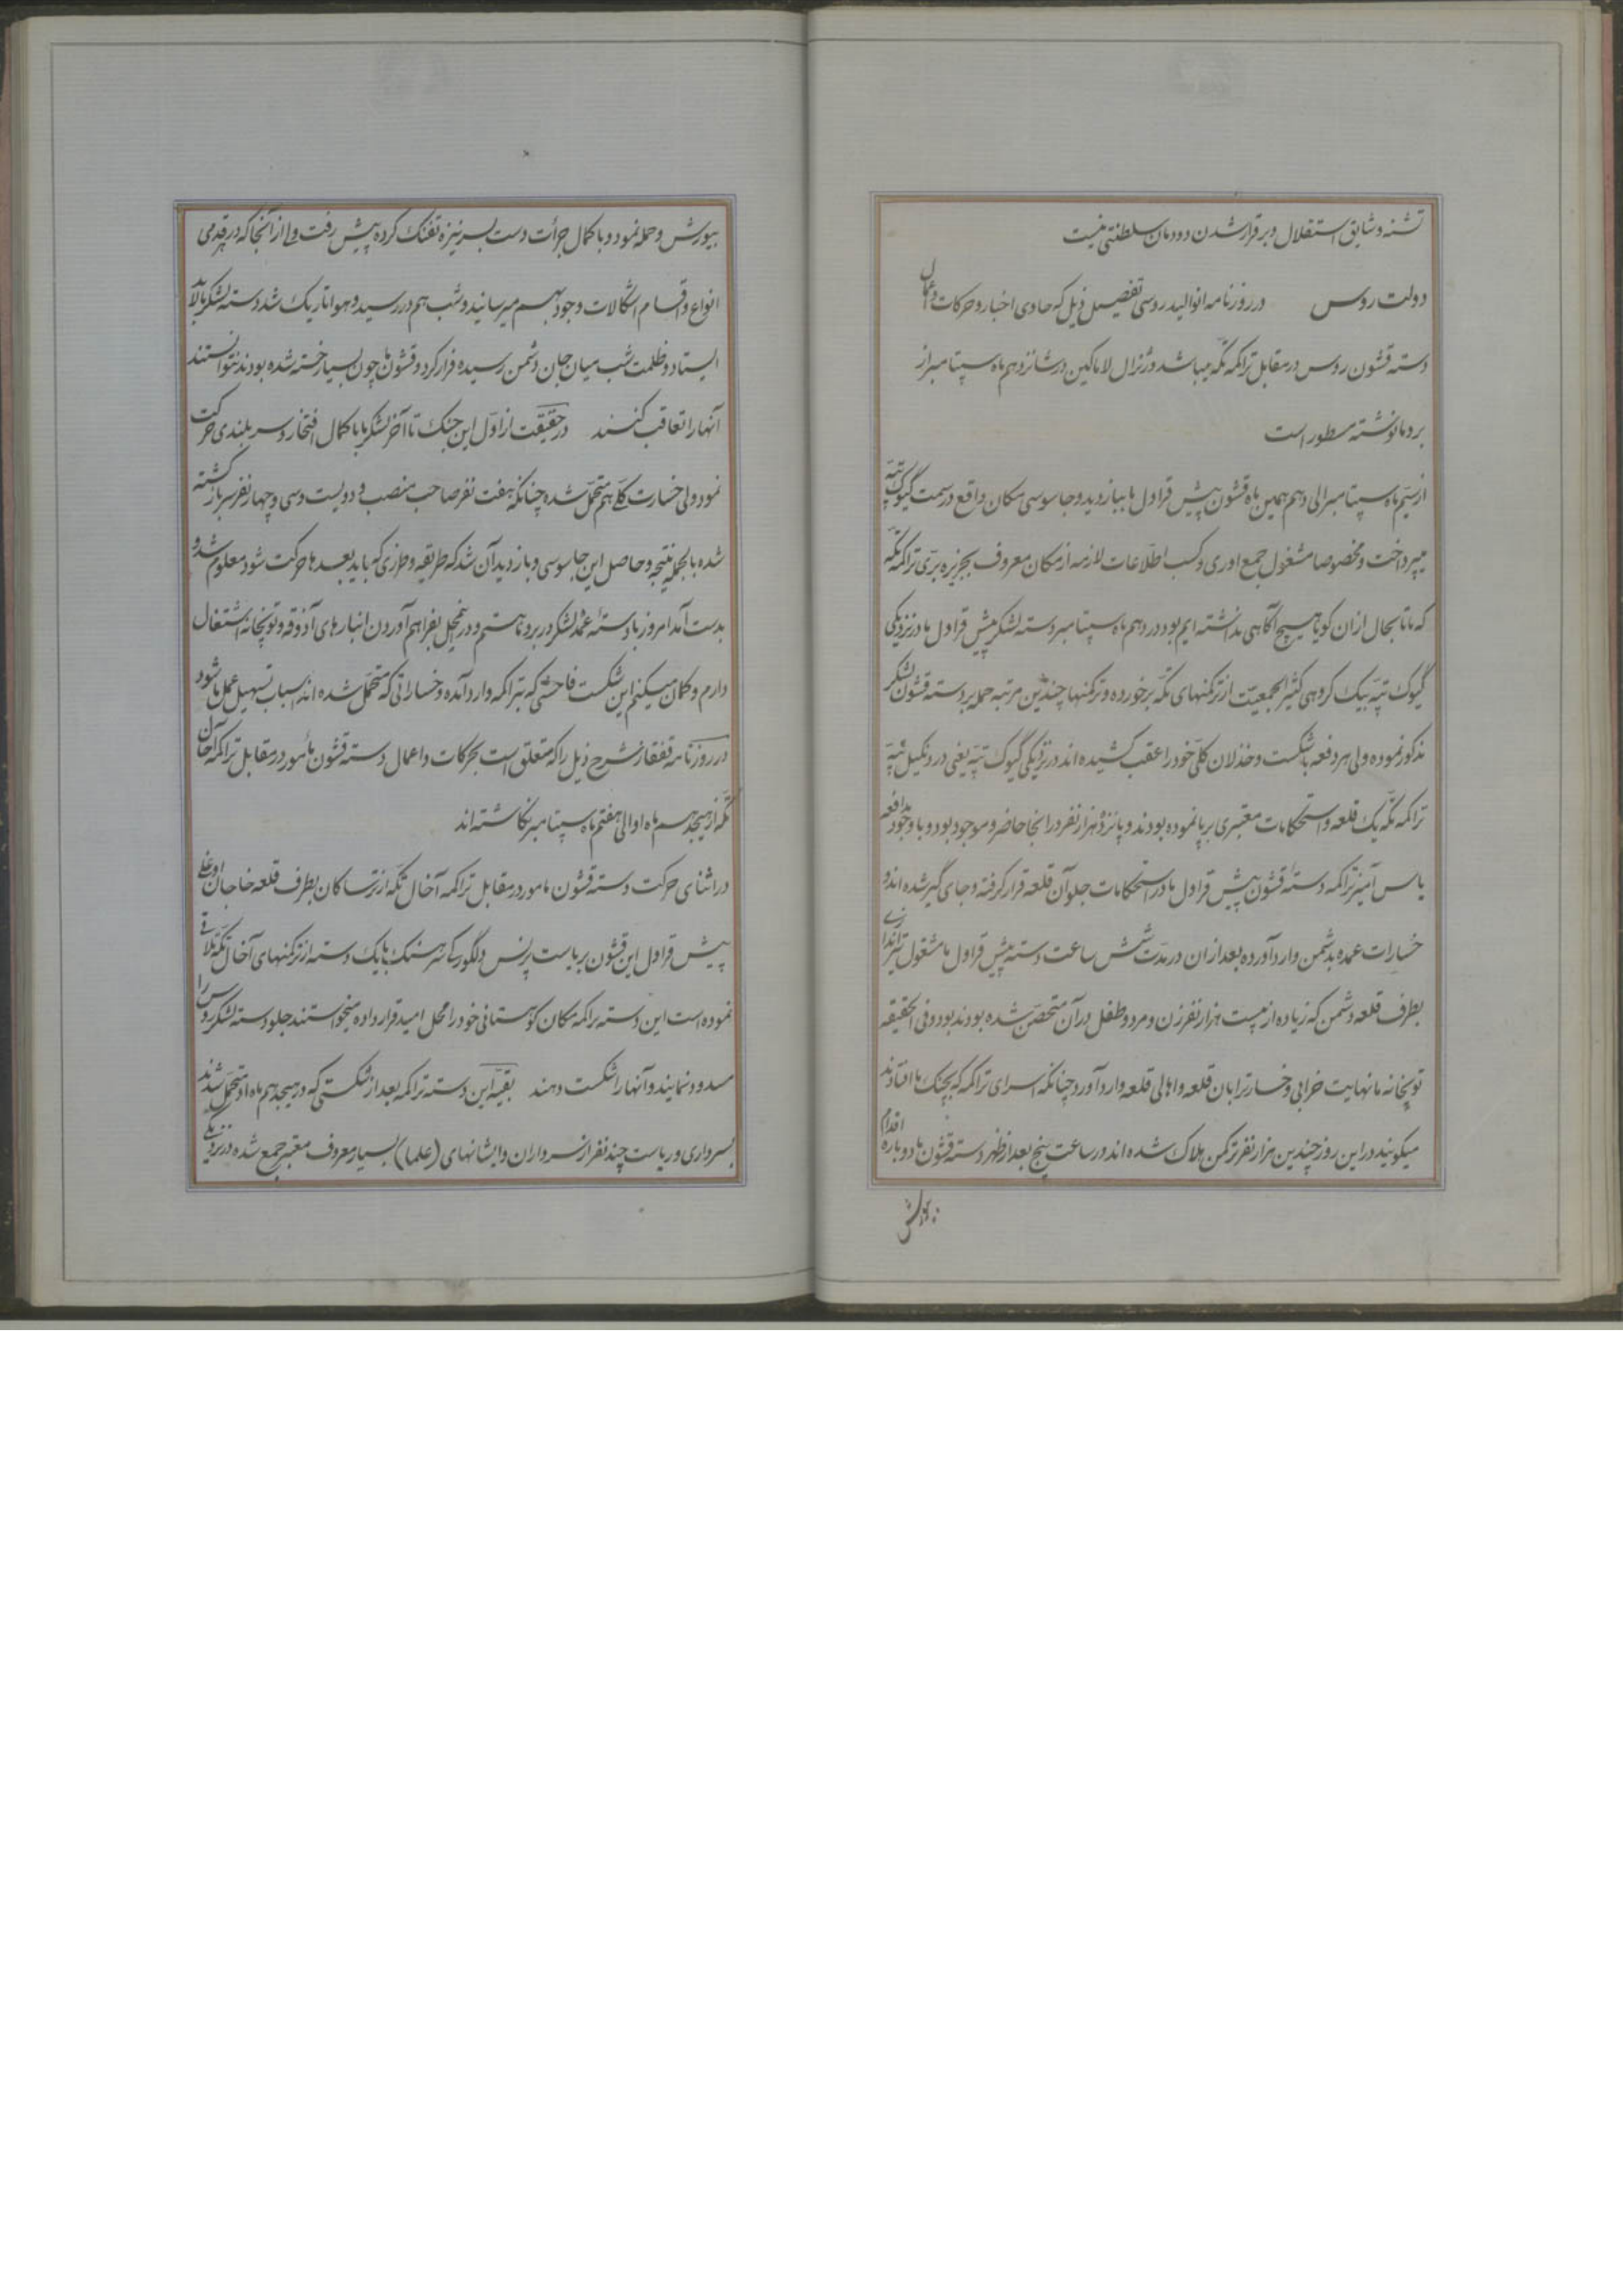 تشنه و شایق استقلال و برقرار شدن دودمان سلطنتی نیست
دولت روس در روزنامه انوالید روسی تفصیل ذیل که حاوی اخبار و حرکات و اعمال
دسته قشون روس در مقابل تراکمه تکه میباشد و ژنرال لاماکین در شانزدهم ماه سپتامبر از
بردما نوشته مسطور است
از سیّم ماه سپتامبر الی دهم همین ماه قشون پیش قراول ما ببازدید و جاسوسی مکان واقع در سمت گیوک تپه
میپرداخت و مخصوصا مشغول جمع اوری و کسب اطلاعات لازمه از مکان معروف بجزیره برّی تراکمه تکه
که ما تا بحال از ان گویا هیچ آگاهی نداشته ایم بود در دهم ماه سپتامبر دسته لشکر پیش قراول ما در نزدیکی
گیوک تپه بیک گروهی کثیر الجمعیّت از ترکمنهای تکّه برخورده و ترکمنها چندین مرتبه حمله بر دسته قشون لشکر
مذکور نموده ولی هر دفعه با شکست و خذلان کلّی خود را عقب کشیده اند در نزدیکی گیوک تپه یعنی در دنگیل تپه
تراکمه تکّه یک قلعه و استحکامات معتبری برپا نموده بودند و پانزده هزار نفر در انجا حاضر و موجود بود و با وجود مدافعه
یاس آمیز تراکمه دستهٔ قشون پیش قراول ما در استحکامات جلو آن قلعه قرار گرفته و جای گیر شده اند و
خسارات عمده بدشمن وارد آورده بعد از ان در مدّت شش ساعت دسته پیش قراول ما مشغول تیراندازی
بطرف قلعه دشمن که زیاده از بیست هزار نفر زن و مرد و طفل در آن متحصّن شده بودند بود و فی الحقیقه
توپخانه ما نهایت خرابی و خسارت را بان قلعه و اهالی قلعه وارد آورد چنانکه اسرای تراکمه که بچنک ما افتادند
میکویند در این روز چندین هزار نفر ترکمن هلاک شده اند در ساعت پنج بعد از ظهر دسته قشون ما دوباره اقدام
بیورش
بیورش و حمله نمود و با کمال جرأت دست بسر نیزه تفنک کرده پیش رفت و از آنجا که در هر قدمی
انواع و اقسام اشکالات وجود بهم میرسانید و شب هم در رسید و هوا تاریک شد دسته لشکر ما لابد
ایستاد و ظلمت شب میان جان دشمن رسیده فرار کرد و قشون ما چون بسیار خسته شده بودند نتوانستند
آنها را تعاقب کنند در حقیقت از اوّل این جنک تا آخر لشکر ما با کمال افتخار و سر بلندی حرکت
نمود ولی خسارت کلّی هم متحمّل شده چنانکه هفت نفر صاحب منصب و دویست و سی و چهار نفر سرباز کشته
شده بالجمله نتیجه و حاصل این جاسوسی و بازدید آن شد که طریقه و طرزی که باید بعدها حرکت شود معلوم شد و
بدست آمد امروز با دستهٔ عمده لشکر در بردما هستم و در این محل بفراهم آوردن انبارهای آذوقه و توپخانه اشتغال
دارم و کمان میکنم این شکست فاحشی که بتراکمه وارد آمده و خساراتی که متحمّل شده اند اسباب تسهیل عمل ما شود
در روزنامه قفقاز شرح ذیل را که متعلق است بحرکات و اعمال دسته قشون مأمور در مقابل تراکمه آخال
تکّه از هیجدهم ماه اوت الی هفتم ماه سپتامبر نکاشته اند
در اثنای حرکت دسته قشون مامور در مقابل تراکمه آخال تکّه از ترساکان بطرف قلعه خاجان
پیش قراول این قشون بریاست پرنس دلگورکی سرهنک با یک دسته از ترکمنهای آخال تکّه تلاقی
نموده است این دسته تراکمه مکان کوهستانی خود را محل امید قرار داده میخواستند جلو دسته لشکر روس را
مسدود نمایند و آنها را شکست دهند بقیّه این دسته تراکمه بعد از شکستی که در هیجدهم ماه اوت متحمّل شدند
بسرداری و ریاست چند نفر از سرداران و ایشانهای (علما) بسیار معروف معتبر جمع شده در نزدیکی